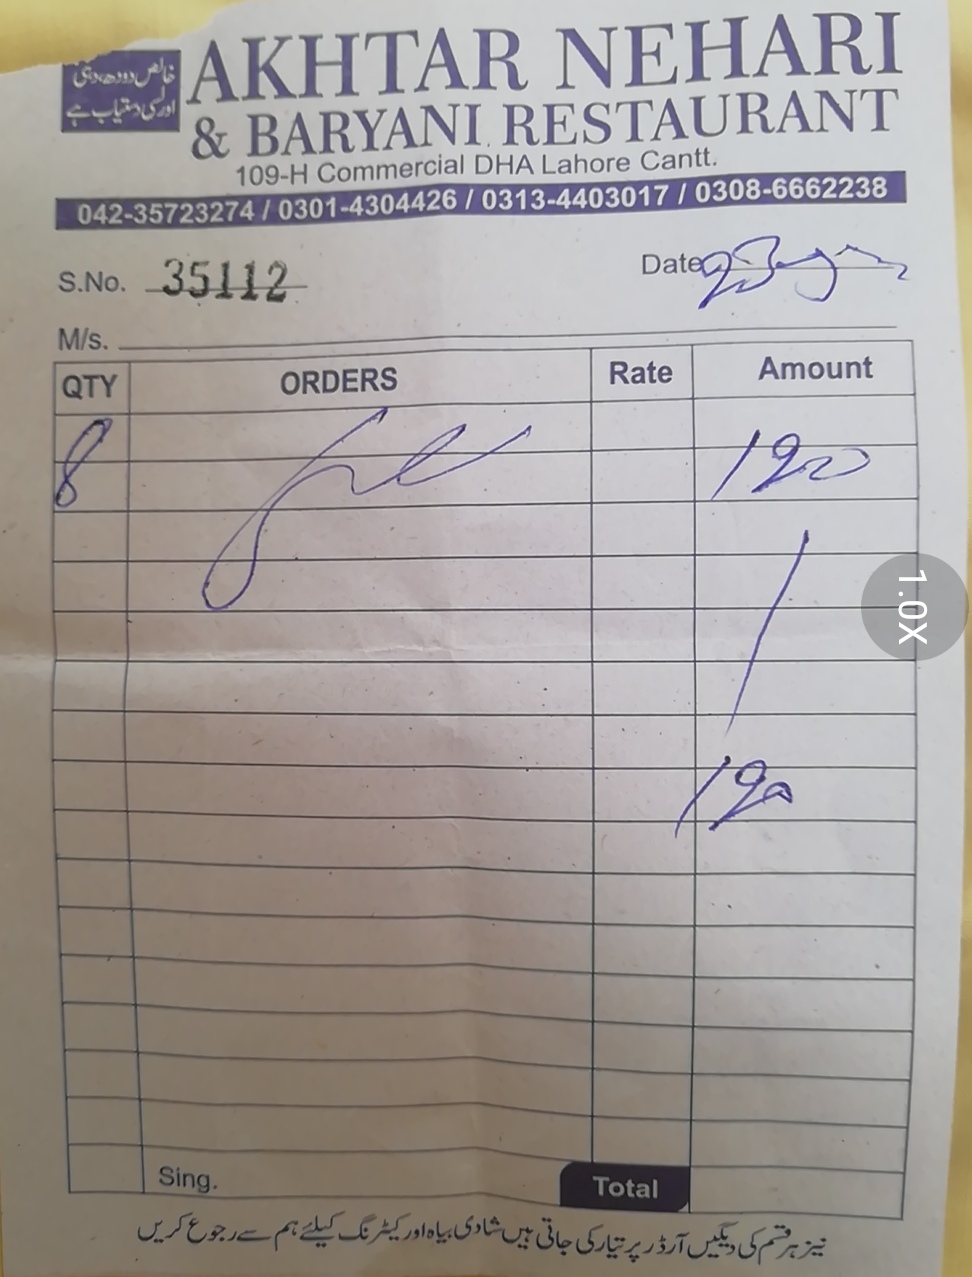 خالص دودھ دہی
اور لسی دستیاب ہے
AKHTAR NEHARI
& BARYANI RESTAURANT
109-H Commercial DHA Lahore Cantt.
042-35723274 / 0301-4304426 / 0313-4403017 / 0308-6662238
S.No. 35112 Date
M/s.
QTY ORDERS Rate Amount
8 120
120
1.0X
Sing. Total
نیز ہر قسم کی دیگیں آرڈر پر تیار کی جاتی ہیں شادی بیاہ اور کیٹرنگ کیلئے ہم سے رجوع کریں